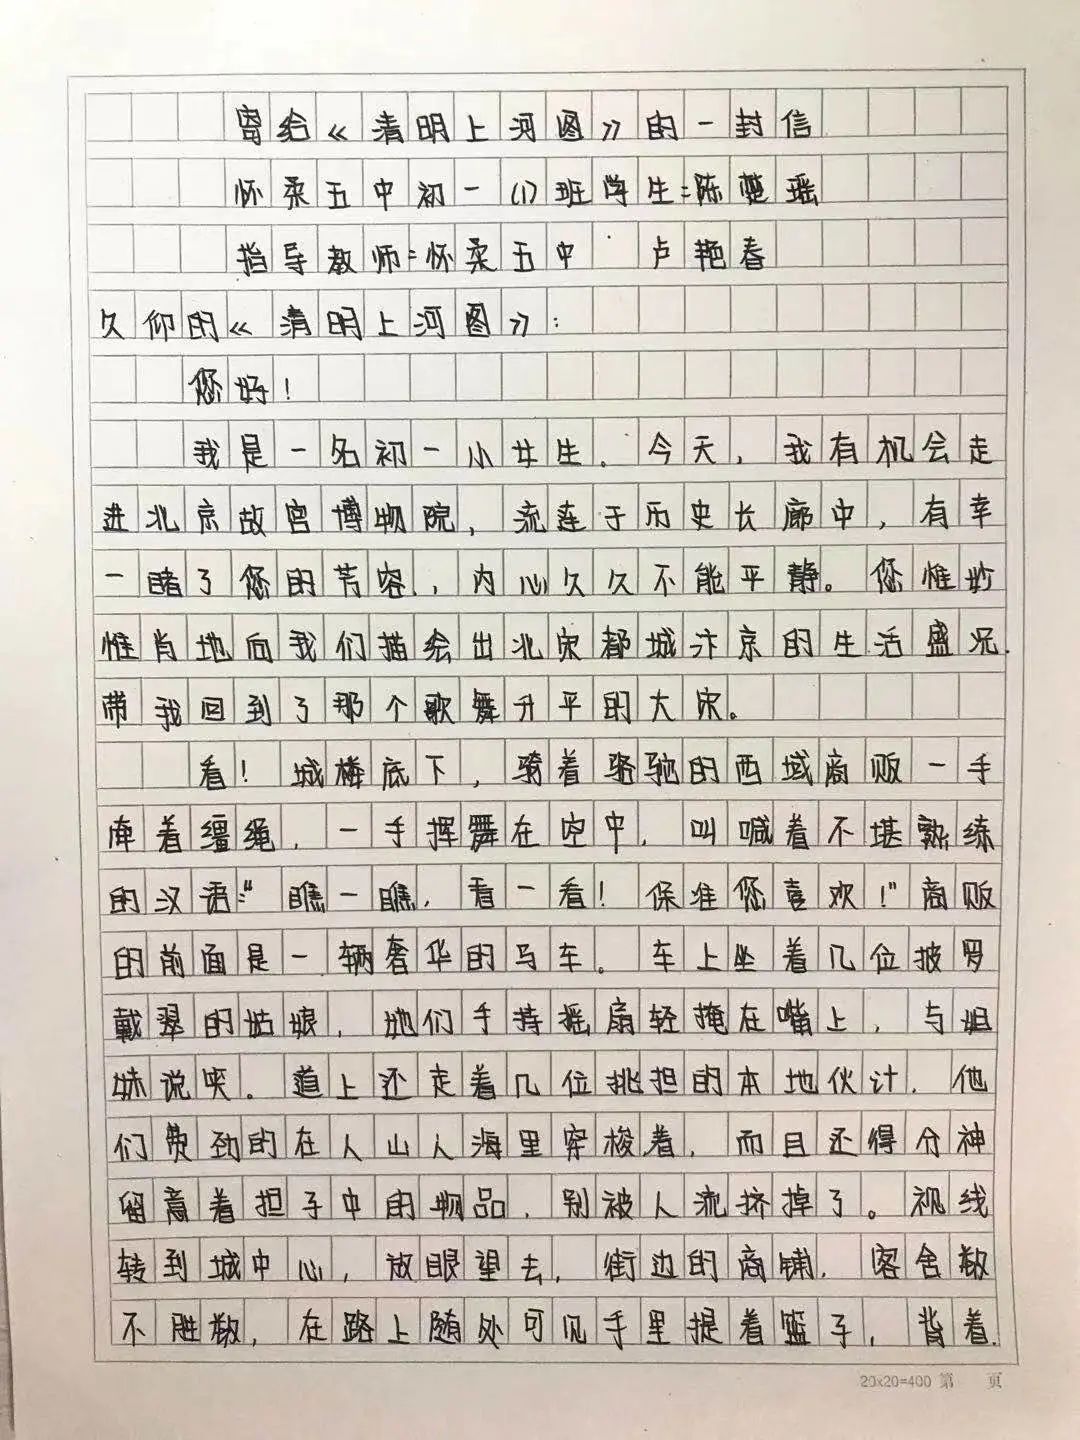 寄给《清明上河图》的一封信
怀柔五中初一(1)班学生:陈楚瑶
指导教师:怀柔五中 卢艳春
久仰的《清明上河图》:
您好!
我是一名初一小女生。今天,我有机会走
进北京故宫博物院,流连于历史长廊中,有幸
一睹了您的芳容,内心久久不能平静。您惟妙
惟肖地向我们描绘出北宋都城汴京的生活盛况,
带我回到了那个歌舞升平的大宋。
看!城楼底下,骑着骆驼的西域商贩一手
牵着缰绳,一手挥舞在空中,叫喊着不堪熟练
的汉语:“瞧一瞧,看一看!保准您喜欢!”商贩
的前面是一辆奢华的马车。车上坐着几位披罗
戴翠的姑娘,她们手持摇扇轻掩在嘴上,与姐
妹说笑。道上还走着几位挑担的本地伙计,他
们费劲的在人山人海里穿梭着,而且还得分神
留意着担子中的物品,别被人流挤掉了。视线
转到城中心,放眼望去,街边的商铺,客舍数
不胜数,在路上随处可见手里提着篮子,背着
20×20=400 第 页